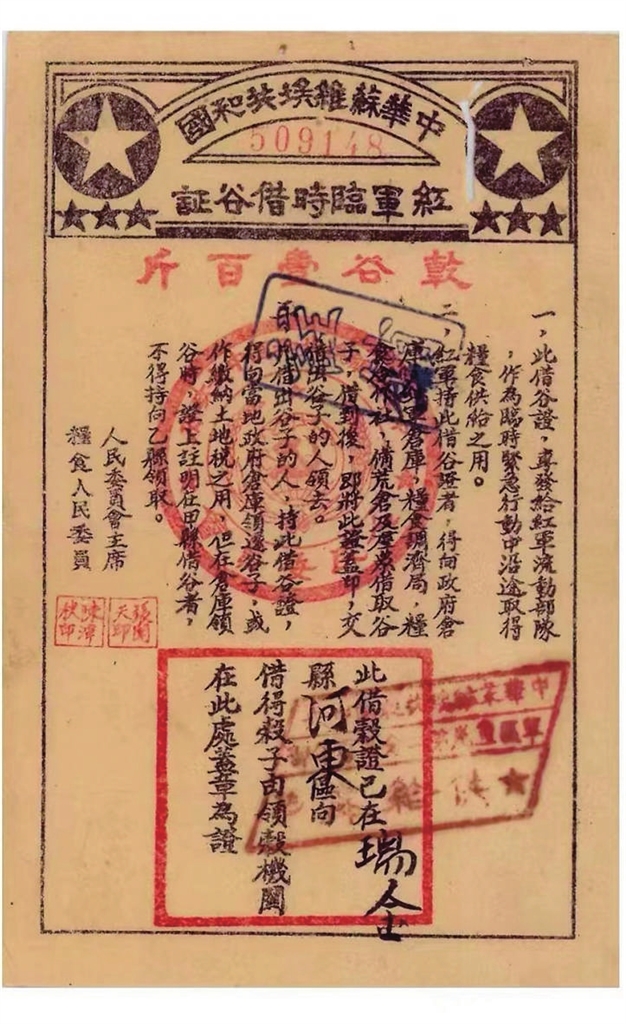 中華蘇維埃共和國
509148
紅軍臨時借谷証
乾谷壹百斤
一，此借谷證，專發給紅軍流動部隊
，作為臨時緊急行動中沿途取得
糧食供給之用。
二，紅軍持此借谷證者，得向政府倉
庫，紅軍倉庫，糧食調濟局，糧
食合作社，備荒倉及羣衆借取谷
子，借到後，即將此證蓋印，交
借出谷子的人領去。
凡借出谷子的人，持此借谷證，
得向當地政府倉庫領還谷子，或
作繳納土地稅之用，但在倉庫領
谷時，證上註明在甲縣借谷者，
不得持向乙縣領取。
人民委員會主席
糧食人民委員
張聞天印
陳潭秋印
此借穀證已在瑞金
縣河東區向
借得穀子由領穀機關
在此處蓋章為證